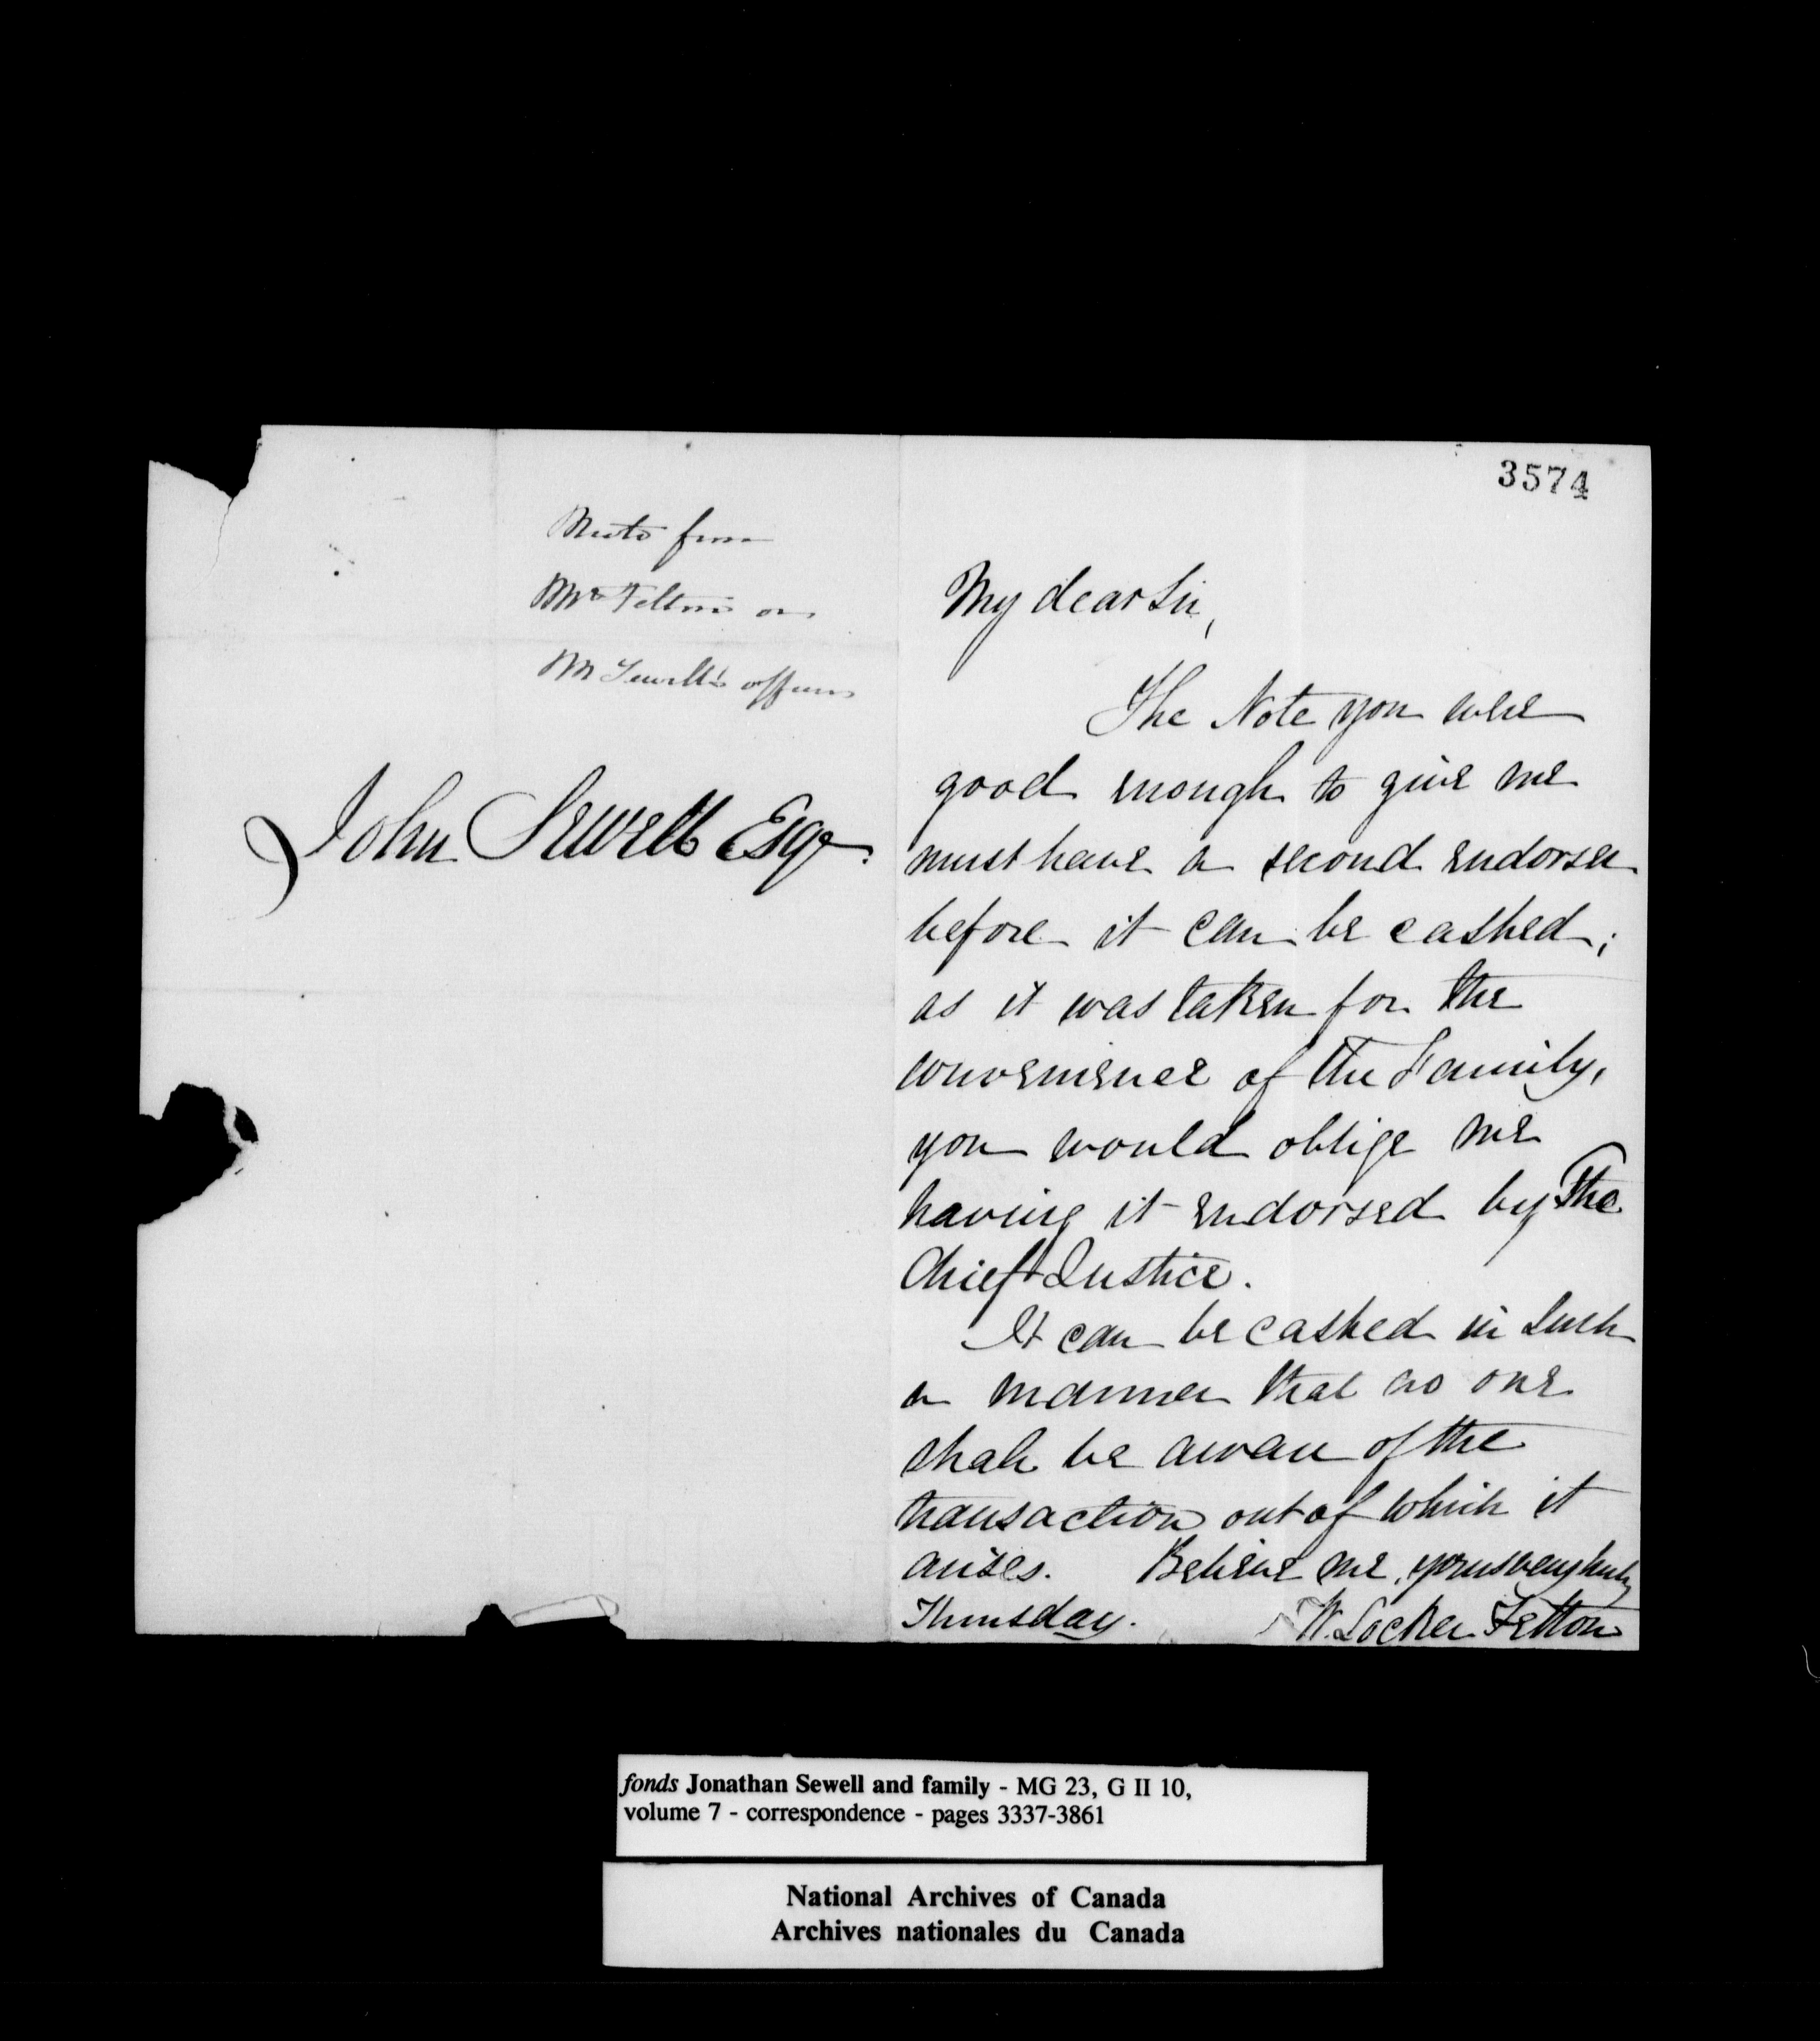 3574
Note from
Mr Felton on
Mr Sewell's affairs
John Sewell Esqe.
My dear Sir,
The Note you were
good enough to give me
must have a second endorser
before it can be cashed;
as it was taken for the
convenience of the Family,
you would oblige me
having it endorsed by The
Chief Justice.
It can be cashed in such
a manner that no one
shall be aware of the
transaction out of which it
arises. Believe me, yours very truly
Thursday. W. Locker Felton
fonds Jonathan Sewell and family - MG 23, G II 10,
volume 7 - correspondence - pages 3337-3861
National Archives of Canada
Archives nationales du Canada